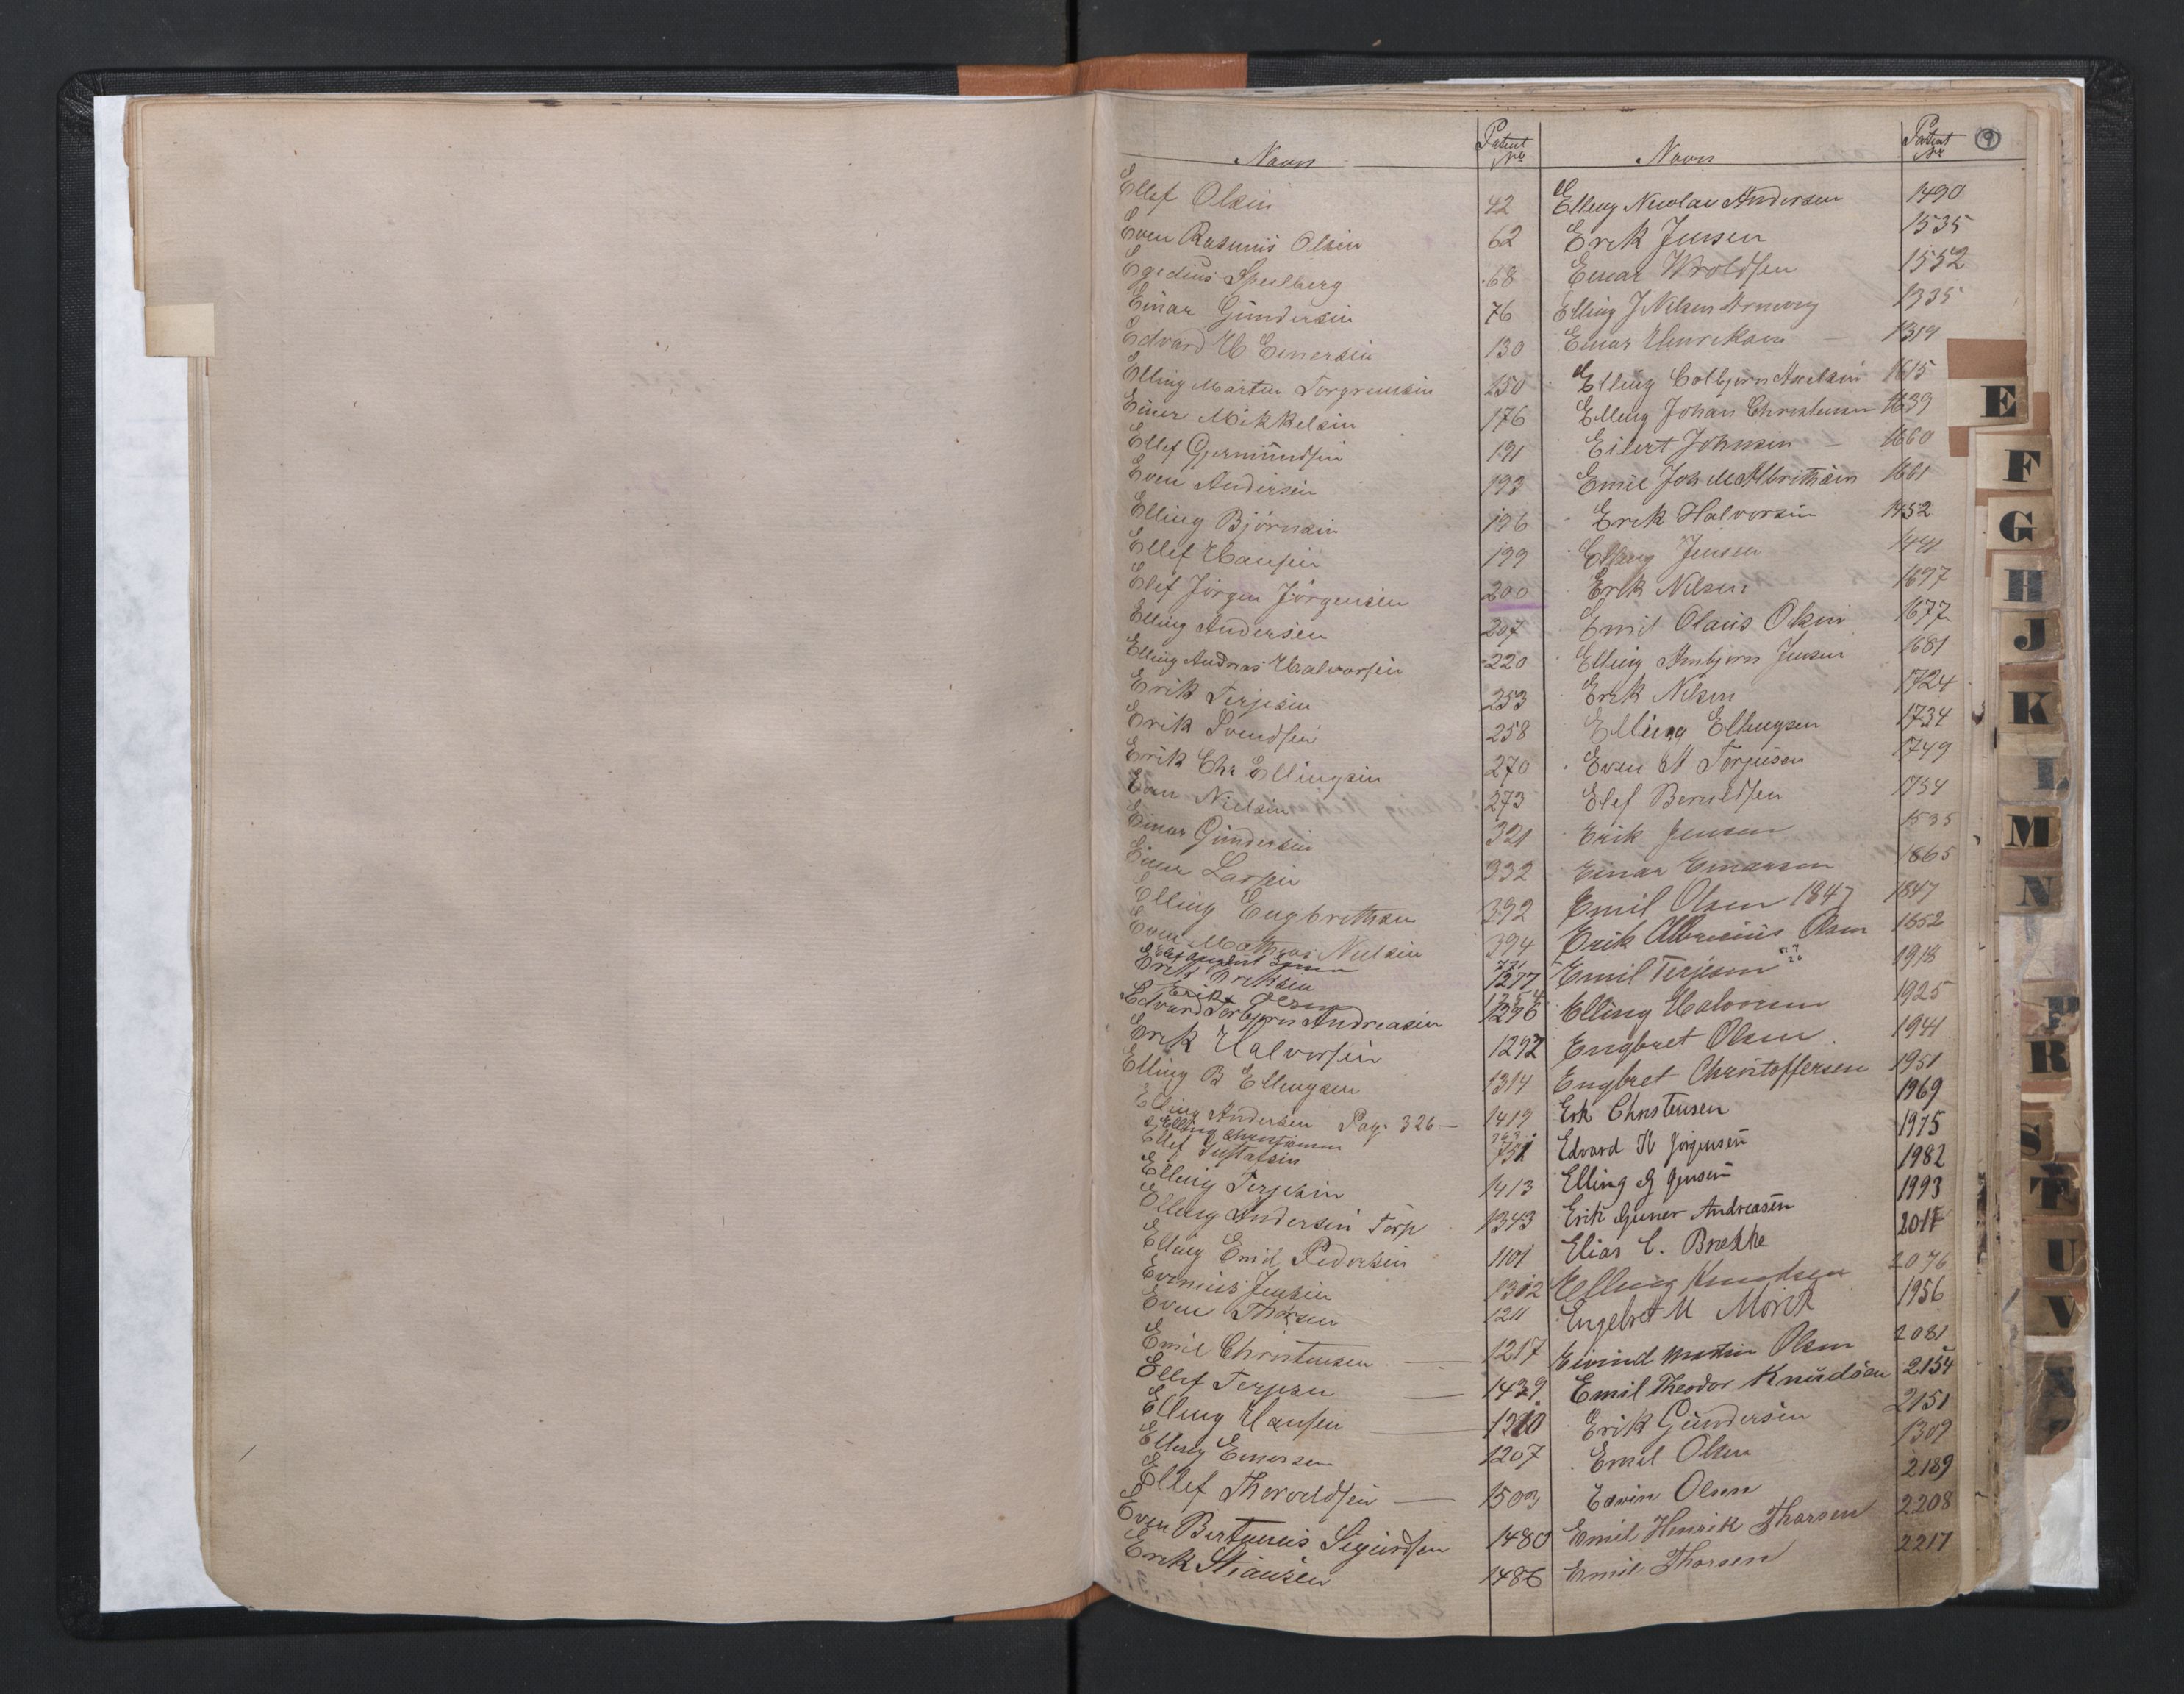 Navn Patent No
Ellef Olsen 42
Even Rasmus Olsen 62
Egedius Speilberg 68
Einar Gundersen 76
Edvard H Einersen 130
Elling Martin Torgrimsen 150
Einer Mikkelsen 176
Ellef Gjermundsen 191
Even Andersen 193
Elling Björnsen 196
Ellef Hansen 199
Elef Jörgen Jörgensen 200
Elling Andersen 207
Elling Andreas Halvorsen 220
Erik Terjesen 253
Erik Svendsen 258
Erik Chr Ellingsen 270
Even Nielsen 273
Einar Gundersen 321
Einer Larsen 332
Elling Engbrethsen 392
Even Mathias Nielsen 394
771
Erik Eriksen 1277
Erik Olsen 1254
Edvard Torbjörn Andreasen 1276
Erik Halvorsen 1292
Elling B Ellingsen 1314
Elling Andersen Pag. 326 — 1419
Elling Christensen 763
Ellef Gustafsen 751
Elling Terjesen 1413
Elling Andersen Torp 1343
Elling Emil Pedersen 1101
Evenius Jensen 1312
Even Thorsen 1211
Emil Christensen — 1217
Ellef Terjesen — 1429
Elling Hansen — 1210
Elling Einersen 1207
Ellef Thoroldsen — 1503
Even Bertinius Sigurdsen 1480
Erik Stiansen 1486
Navn Patent Nr
9
Elling Nicolai Andersen 1490
Erik Jensen 1535
Einar Wroldsen 1552
Elling J Nilsen 1335
Einar Henriksen — 1319
Elling Colbjörn Axelsen 1615
Elling Johan Christensen 1639
Eilert Johnsen — 1660
Emil Joh M Albrithsen 1661
Erik Halvorsen 1452
Elling Jensen 1441
Erik Nilsen 1697
Emil Olaus Olsen 1677
Elling Arnbjörn Jensen 1681
Erik Nilsen 1724
Elling Ellingsen 1734
Even A Torjusen 1749
Elef Beruldsen 1754
Erik Jensen 1535
Einar Einarsen 1865
Emil Olsen 1847 1847
Erik Albrecius Olsen 1852
Emil Terjesen 1918
Elling Halvorsen 1925
Engbret Olsen 1941
Engbret Christoffersen 1951
Erik Christensen 1969
Edvard H Jörgensen 1975
Elling G Jensen 1982
Erik Guner Andreasen 1993
Elias C. Brække 2017
Elling Knudsen 2076
Engelbret M Mörch 1956
Eivind Martin Olsen 2081
Emil Theodor Knudsen 2154
Erik Gundersen 2151
Emil Olsen 1309
Edvin Olsen 2189
Emil Henrik Thorsen 2208
Emil Thorsen 2217
E
F
G
H
J
K
L
M
N
P
R
S
T
U
V